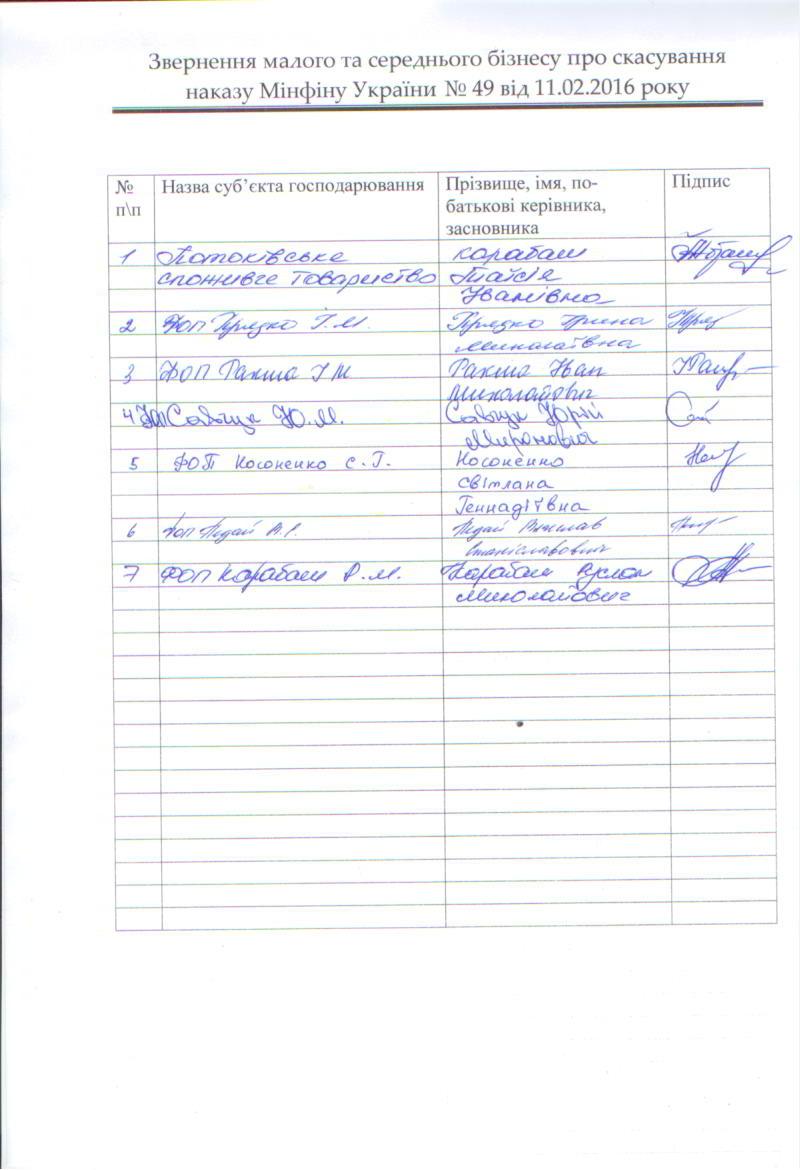 Звернення малого та середнього бізнесу про скасування
наказу Мінфіну України № 49 від 11.02.2016 року
№ п\п Назва суб’єкта господарювання Прізвище, імя, по-батькові керівника, засновника Підпис
1 Потоківське карабаш
споживче товариство Таїсія
Іванівна
2 ФОП Прядко І.М. Прядко Ірина
Миколаївна
3 ФОП Ракша І М Ракша Іван
Миколайович
4 ФОП Савчук Ю.М. Савчук Юрій
Миронович
5 ФОП Косоненко С.Г. Косоненко
світлана
Геннадіївна
6 ФОП Педай В.С. Педай
Станіславович
7 ФОП Карабаш Р.М. Карабаш Руслан
Миколайович